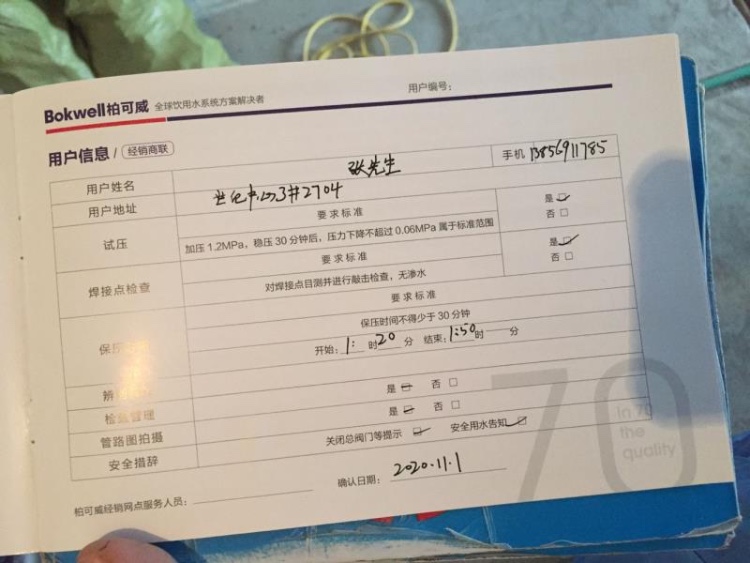 Bokwell柏可威 全球饮用水系统方案解决者 用户编号：
用户信息 / 经销商联
用户姓名 张先生 手机 13856911785
用户地址 世纪中心3#2704
试压 要求标准 是 否
加压 1.2MPa，稳压 30 分钟后，压力下降不超过 0.06MPa 属于标准范围
焊接点检查 要求标准 是 否
对焊接点目测并进行敲击检查，无渗水
保压 要求标准
保压时间不得少于 30 分钟
开始：1: 时 20 分 结束：1:50 时 分
是 否
检 管理 是 否
管路图拍摄
关闭总阀门等提示 安全用水告知
安全措辞
确认日期：2020.11.1
柏可威经销网点服务人员：
70
in 70
the
quality